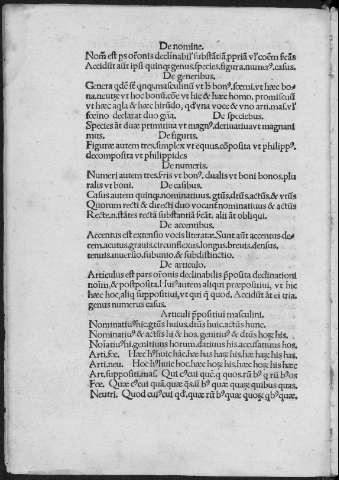 De nomine.
Nomẽ est ps orõnis declinabilʼ substãtiã ppriã vʼl cõem scãs
Accidũt aũt ipsi quinqꝫ genus, species, figura, numerꝰ, casus.
De generibus.
Genera qdẽ st̃ qnqꝫ masculinũ vt h bonꝰ. fœmi. vt hæc bo-
na. neutꝝ vt hoc bonũ. cõe vt hic & hæc homo. promiscuũ
vt hæc aqla & hæc hirũdo, qd vna voce & vno arti. mas. vʼl
fœino declarat duo gña. De speciebus.
Species ãt duæ primitiua vt magnꝰ, deriuatiua vt magnani
mus. De figuris.
Figuræ autem tres, simplex vt equus, cõposita vt philippꝰ,
decomposita vt philippides
De numeris.
Numeri autem tres, sĩris vt bonꝰ, dualis vt boni bonos, plu
ralis vt boni. De casibus.
Casus autem quinqꝫ, nominatiuus, gtũs, dtũs, actũs, & vtũs
Quorum recti & directi duo vocant nominatiuus & actũs
Recte, n. stãtes rectã substantiã scãt. alii ãt obliqui.
De accentibus.
Accentus est extensio vocis literatæ. Sunt aũt accentus de-
cem, acutus, grauis, circunflexus, longus, breuis, densus,
tenuis, incẽtio, subunio, & subdistinctio.
De articulo.
Articulus est pars orõnis declinabilis pposita declinationi
noĩm, & postposita. Huiꝰ autem aliqui præpositiui, vt hic
hæc hoc, aliq suppositiui, vt qui q̃ quod. Accidũt ãt ei tria,
genus numerus casus.
Articuli ppositiui masculini.
Nominatiuꝰ hic, gtũs huius, dtũs huic, actũs hunc.
Nominatiuꝰ & actũs hi & hos, genitiuꝰ & dtũs hoꝝ his.
Noĩatiuꝰ hi, genitiuus horum, datiuus his, accusatiuus hos.
Arti. fœ. Hæc hꝰ huic hãc, hæ has haꝝ his, hæ haꝝ his has.
Arti. neu. Hoc hꝰ huic hoc, hæc hoꝝ his, hæc hoꝝ his hæc
Art. suppositi. mas. Qui cꝰ cui quẽ, q quos, rũ bꝰ q rũ bꝰ os
Fœ. Quæ cꝰ cui quã, quæ q̃s, ũ bꝰ quæ quaꝝ quibus quas,
Neutri. Quod cuiꝰ cui qd, quæ rũ bꝰ quæ quoꝝ qbꝰ quæ.